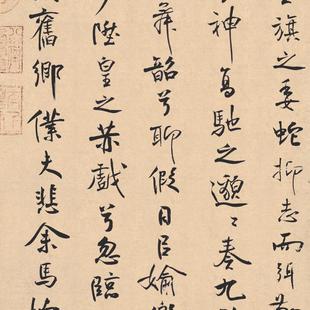 旗之委蛇抑志而弭
神高馳之邈〻奏九
舞韶兮聊假日㠯媮樂
陞皇之赫戲兮忽臨
舊鄉僕夫悲余馬